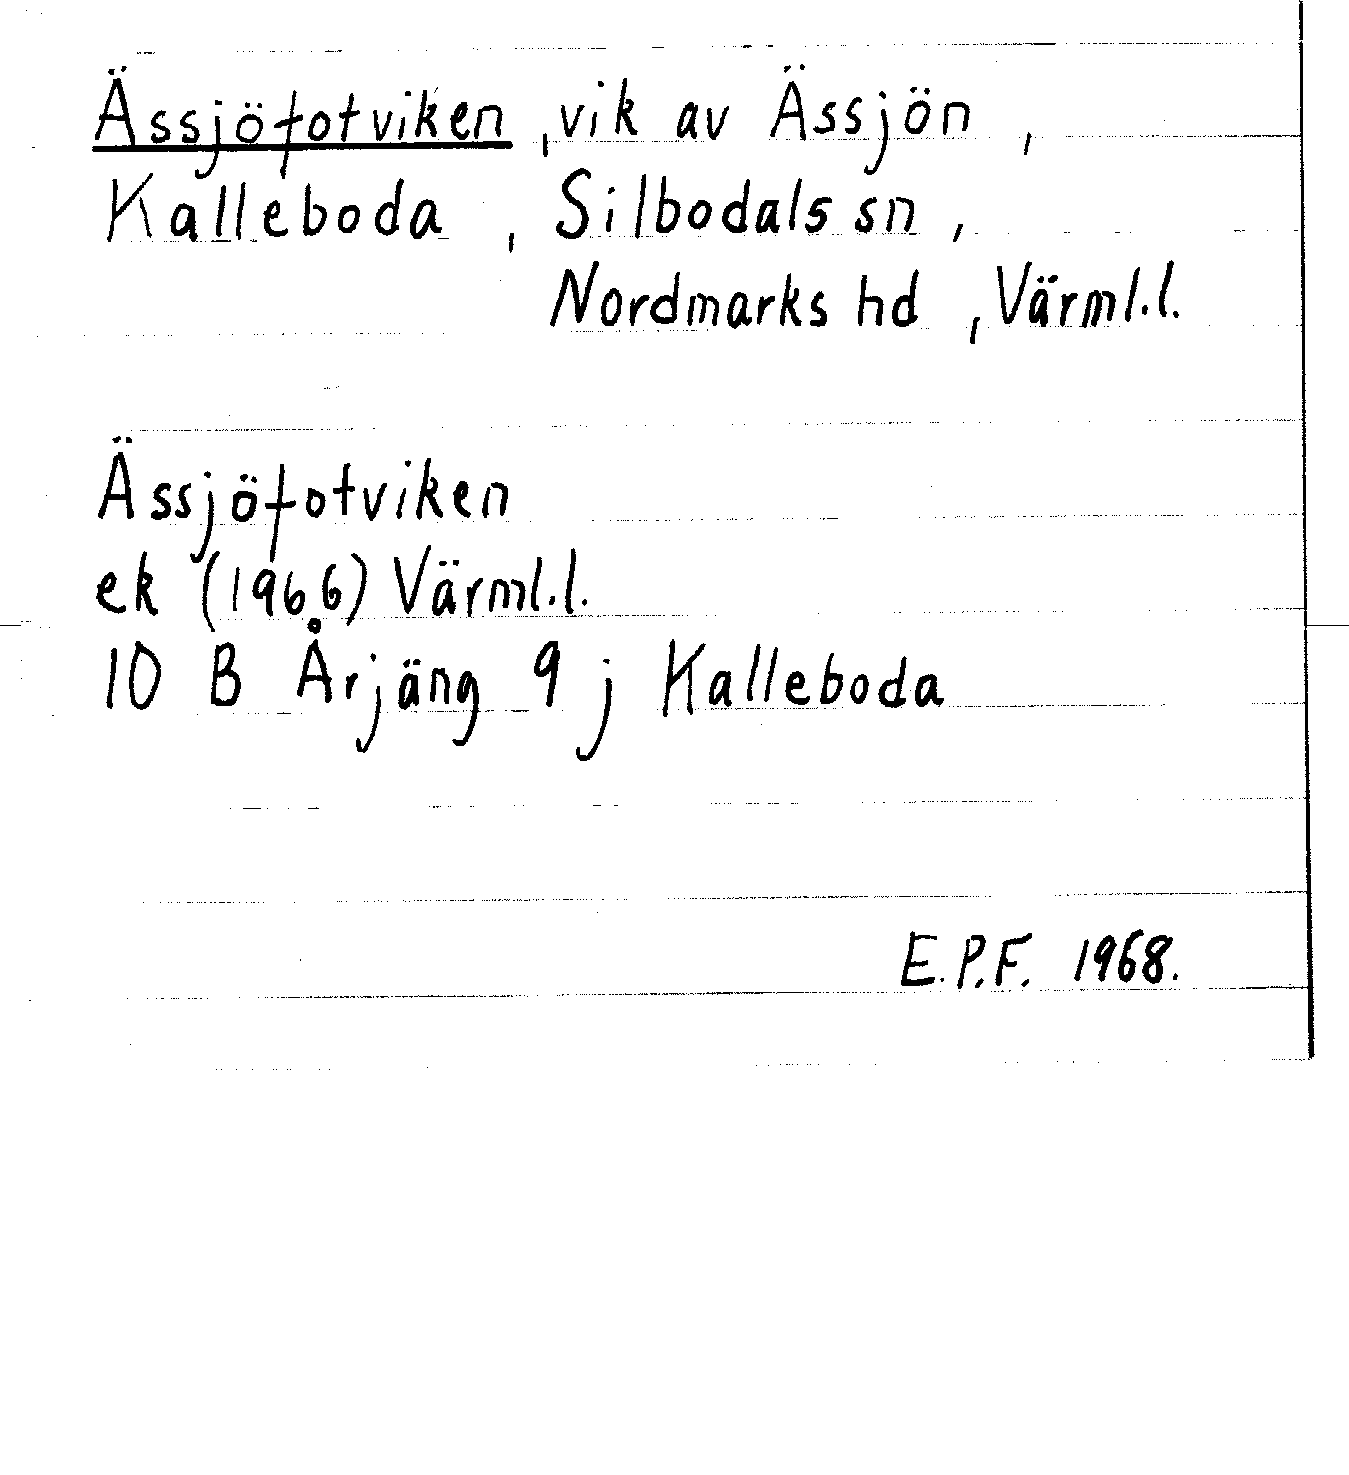 Ässjöfotviken, vik av Ässjön,
Kalleboda, Silbodals sn,
Nordmarks hd, Värml.l.
Ässjöfotviken
ek (1966) Värml.l.
10 B Årjäng 9 j Kalleboda
E.P.F. 1968.